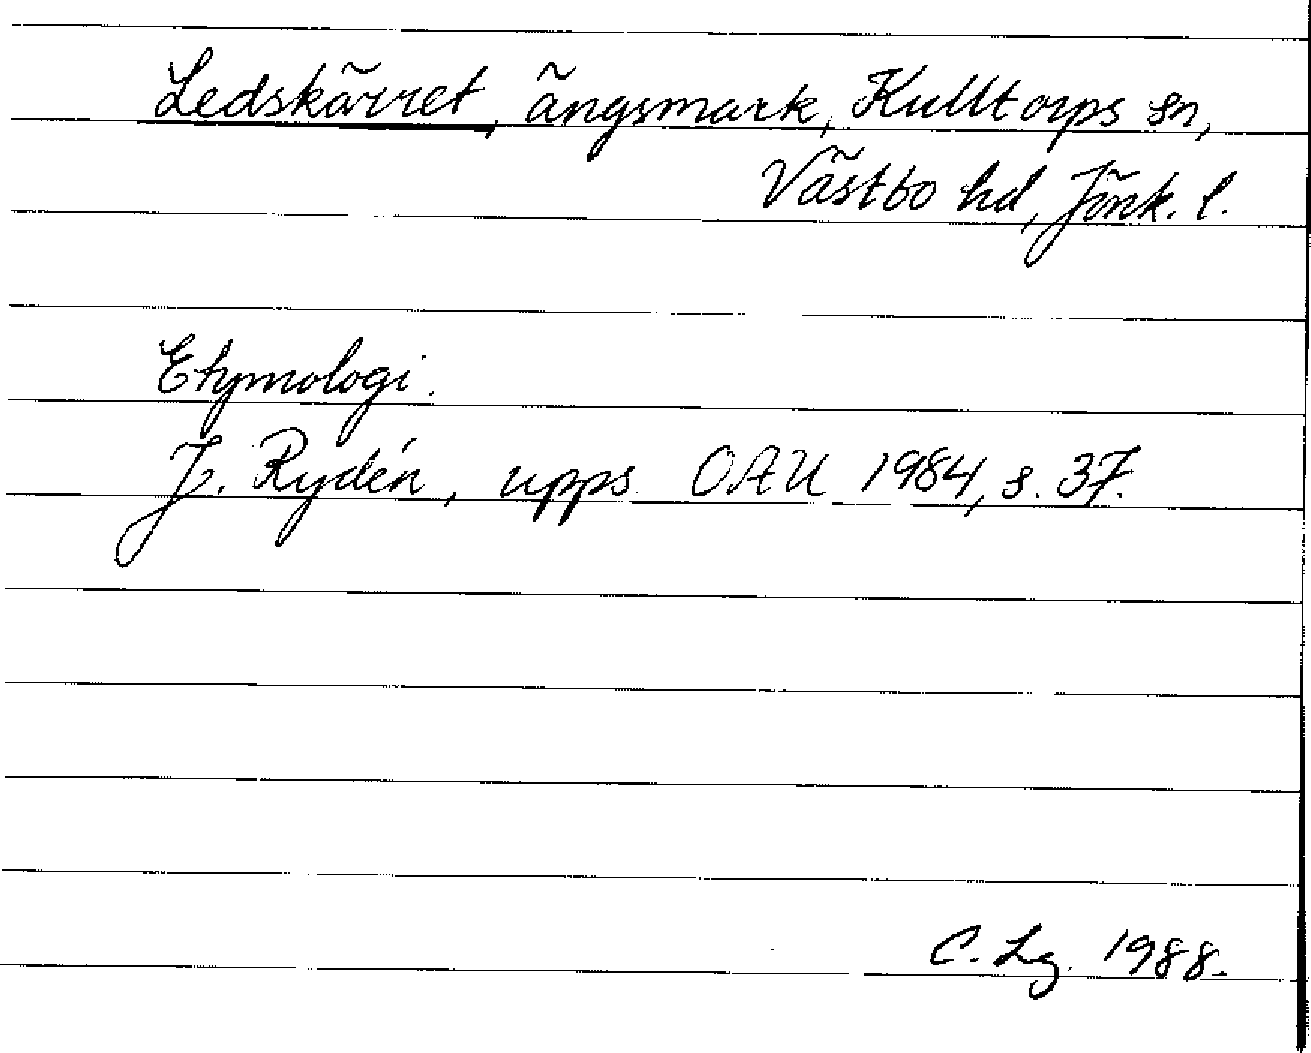 Ledskärret, ängsmark, Kulltorps sn,
Västbo hd, Jönk. l.
Etymologi.
J. Rydén, upps. OAU 1984, s. 37.
C. Lg. 1988.